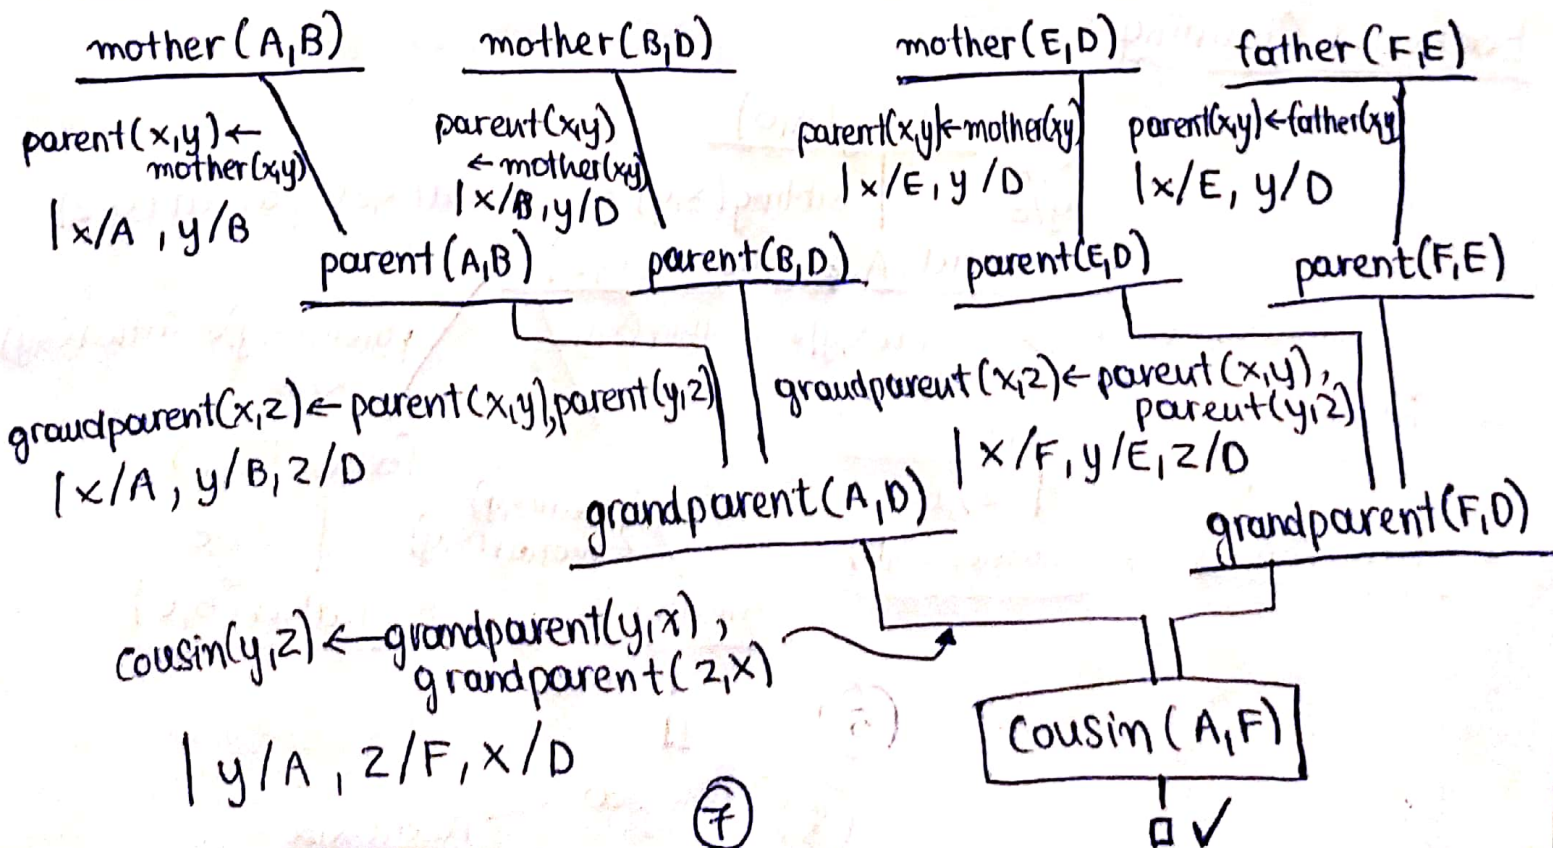 mother(A,B)
mother(B,D)
mother(E,D)
father(F,E)
parent(x,y)←
mother(x,y)
|x/A, y/B
parent(x,y)
←mother(x,y)
|x/B, y/D
parent(x,y)←mother(x,y)
|x/E, y/D
parent(x,y)←father(x,y)
|x/E, y/D
parent(A,B)
parent(B,D)
parent(E,D)
parent(F,E)
grandparent(x,z)←parent(x,y),parent(y,z)
|x/A, y/B, z/D
grandparent(x,z)←parent(x,y),
parent(y,z)
|x/F, y/E, z/D
grandparent(A,D)
grandparent(F,D)
cousin(y,z)←grandparent(y,x),
grandparent(z,x)
|y/A, z/F, x/D
cousin(A,F)
□ ✓
7